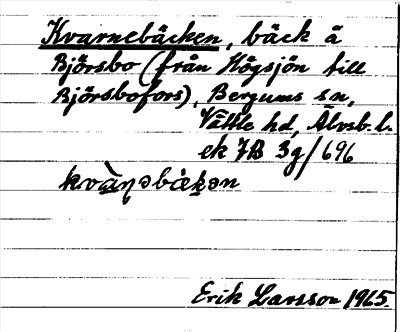 Kvarnebäcken, bäck å
Björsbo (från Högsjön till
Björsbofors), Bergums sn,
Vättle hd, Älvsb. l.
ek 7B 3g/696
kvà̱ɳəbäk̠ən
Erik Larsson 1965.